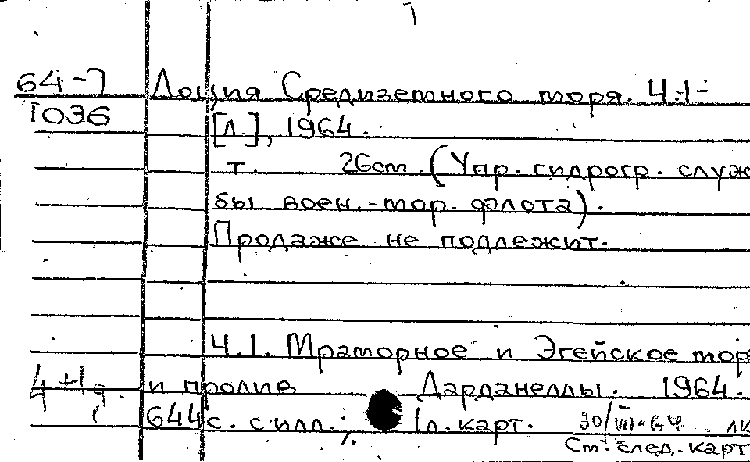 64-7 Лоция Средиземного моря. Ч.1-
1036 [Л.], 1964.
т. 26cm (Упр. гидрогр. служ
бы воен.-мор. флота).
Продаже не подлежит.
Ч.1. Мраморное и Эгейское мор
и пролив Дарданеллы. 1964.
644 с. с илл.; 1 л. карт.
См. след. карт